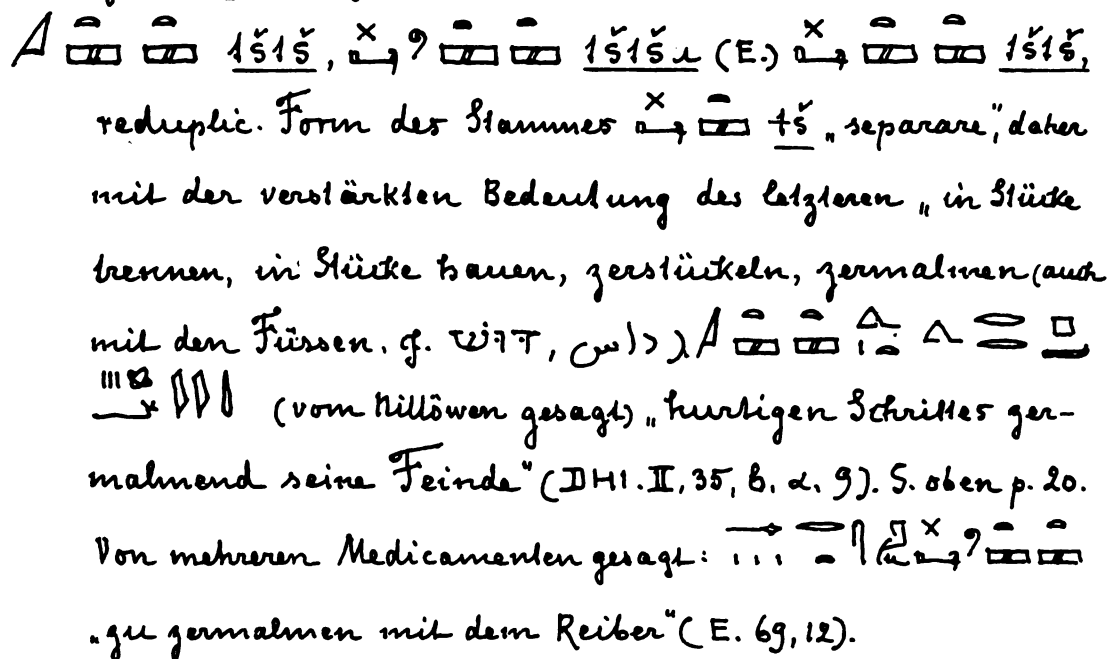 tštš, tštšu (E.) tštš,
reduplic. Form des Stammes tš „separare“, daher
mit der verstärkten Bedeutung des letzteren „in Stücke
trennen, in Stücke hauen, zerstückeln, zermalmen (auch
mit den Füssen, cf. داس)
(vom Nillöwen gesagt) „hurtigen Schrittes zer-
malmend seine Feinde“ (DHI. II, 35, b, α, 9). S. oben p. 20.
Von mehreren Medicamenten gesagt:
„zu zermalmen mit dem Reiber“ (E. 69, 12).